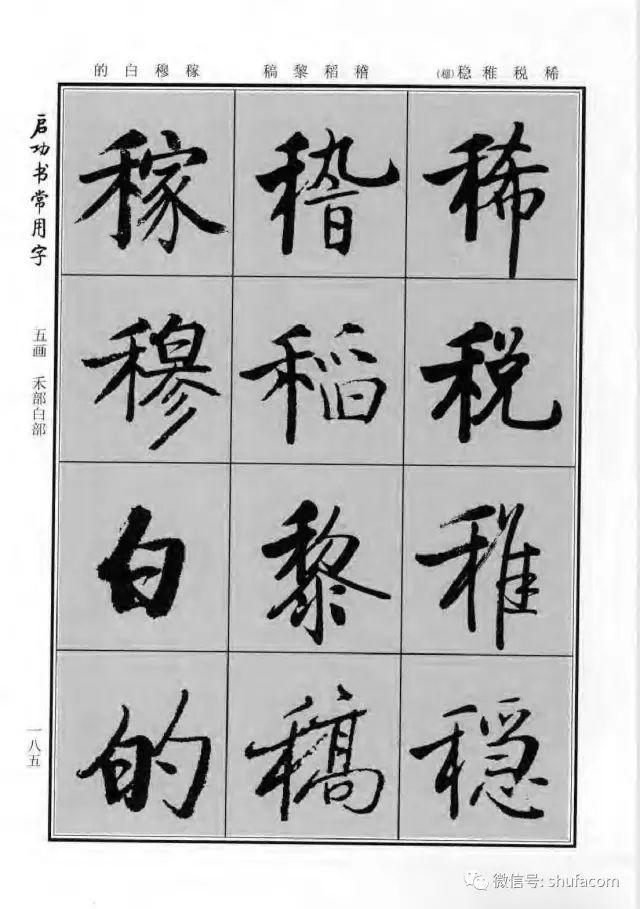 稀税稚稳(穩)
稽稻黎稿
稼穆白的
稀
税
稚
穩
稽
稻
黎
稿
稼
穆
白
的
启功书常用字
五画 禾部白部
一八五
微信号: shufacom